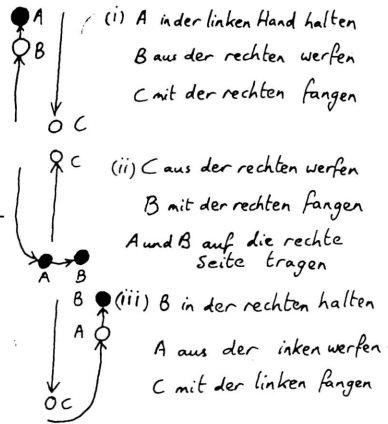 A
B
C
(i) A in der linken Hand halten
B aus der rechten werfen
C mit der rechten fangen
C
A
B
(ii) C aus der rechten werfen
B mit der rechten fangen
A und B auf die rechte
Seite tragen
B
A
C
(iii) B in der rechten halten
A aus der inken werfen
C mit der linken fangen